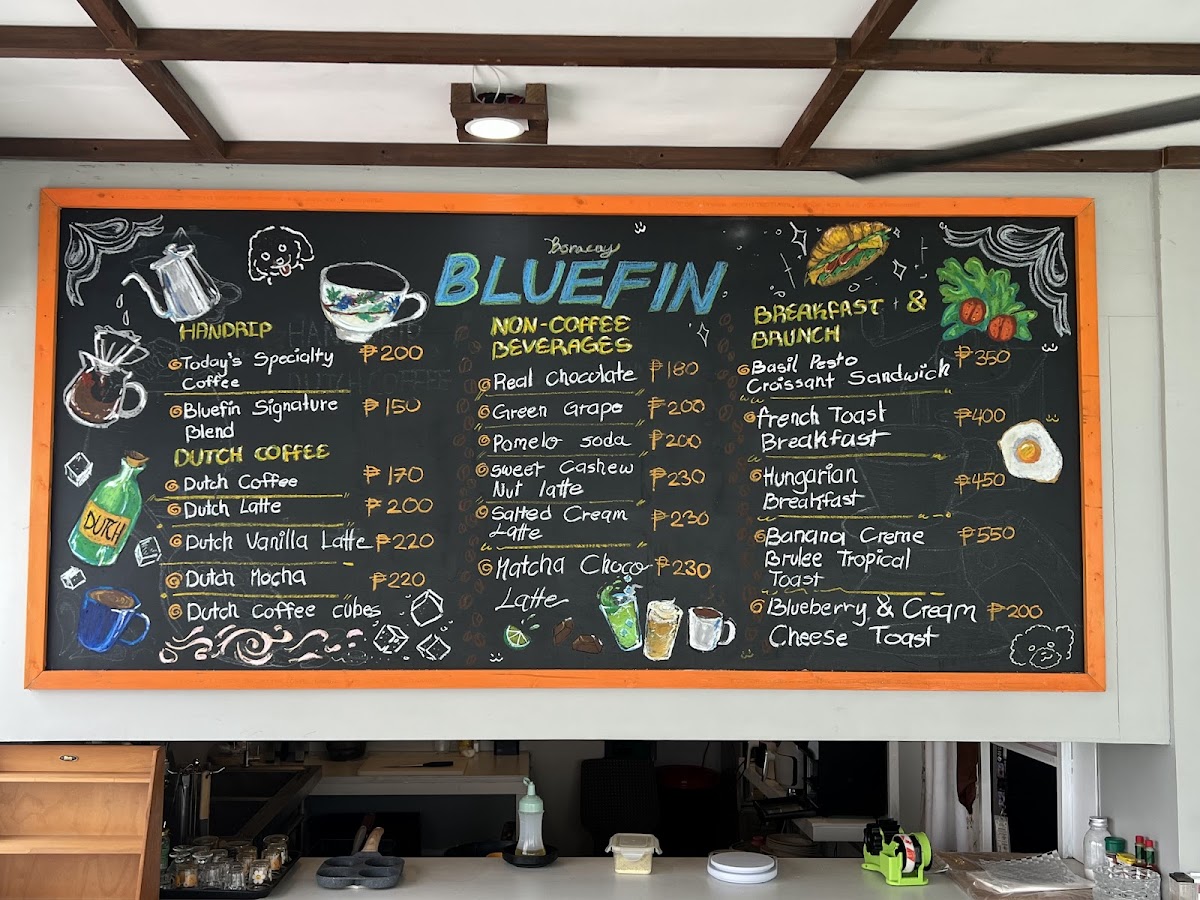 Boracay
BLUEFIN
HANDRIP
Today's Specialty ₱200
Coffee
Bluefin Signature ₱150
Blend
DUTCH COFFEE
Dutch Coffee ₱170
Dutch Latte ₱200
Dutch Vanilla Latte ₱220
Dutch Mocha ₱220
Dutch coffee cubes
DUTCH
NON-COFFEE
BEVERAGES
Real Chocolate ₱180
Green Grape ₱200
Pomelo soda ₱200
Sweet Cashew ₱230
Nut latte
Salted Cream ₱230
Latte
Matcha Choco ₱230
Latte
BREAKFAST &
BRUNCH
Basil Pesto ₱350
Croissant Sandwich
French Toast ₱400
Breakfast
Hungarian ₱450
Breakfast
Banana Creme ₱550
Brulee Tropical
Toast
Blueberry & Cream ₱200
Cheese Toast